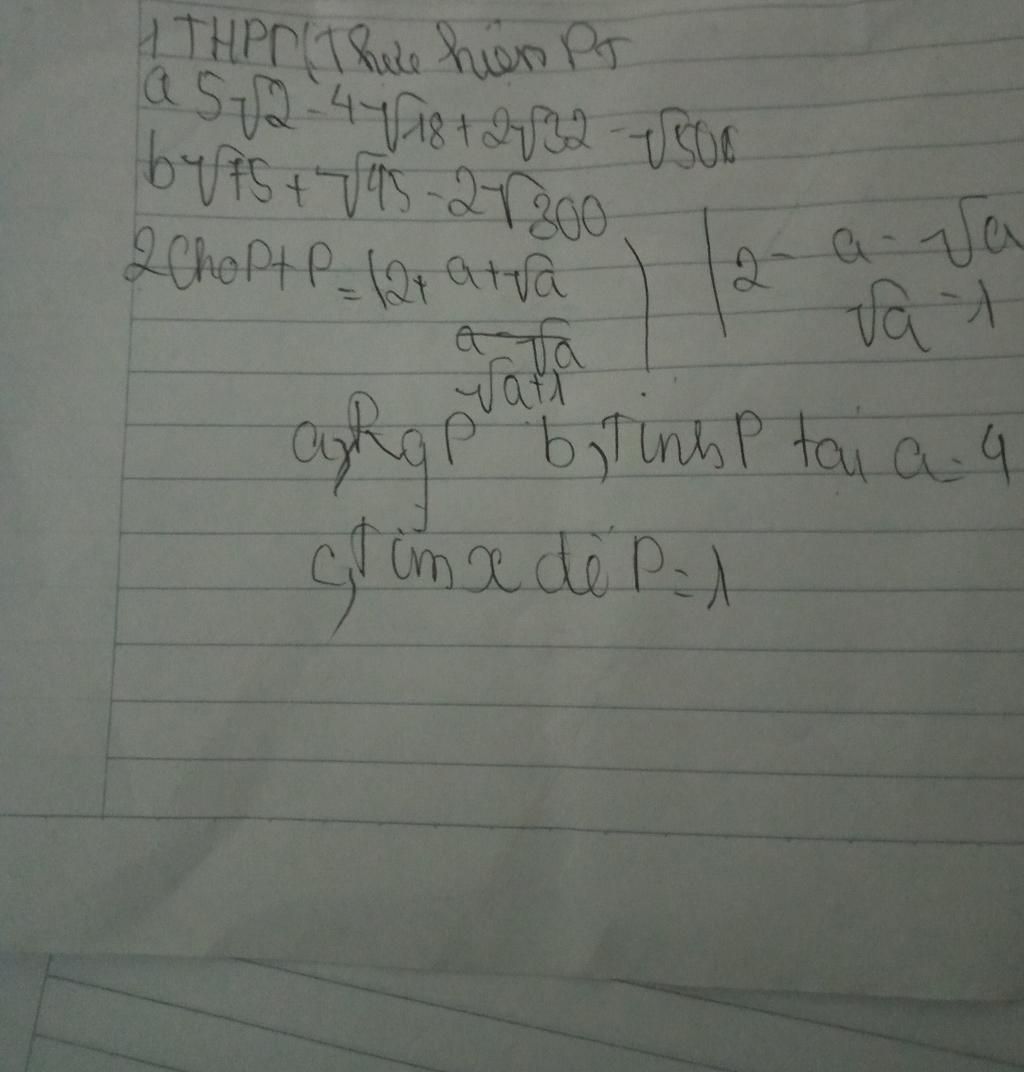 1 THPT (Thực hiện PT
a 5√2 - 4√18 + 2√32 - √50
b √75 + √45 - 2√300
2 Cho P+ P = (2 + a+√a / √a+1) (2 - a-√a / √a-1
a, Rg P b, Tính P tại a = 4
c, Tìm x để P = 1